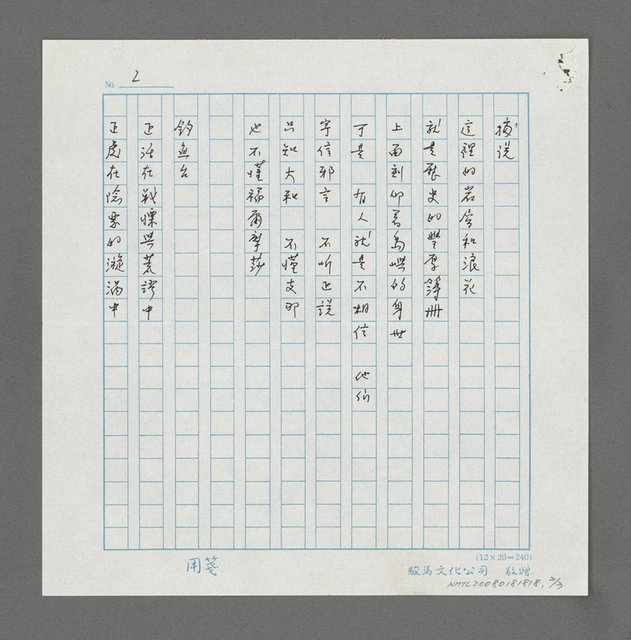 No. 2
據説
這裡的岩層和浪花
就是歷史的豐厚簿冊
上面刻印着島嶼的身世
可是 有人就是不相信 他們
字信邪言 不听正説
只知大和 不懂支那
也不懂福爾摩莎
釣魚台
正活在戰慄與荒謬中
正處在險惡的漩渦中
(12×20=240)
用箋
駿馬文化公司 敬贈
NMTL20080181818, 2/3